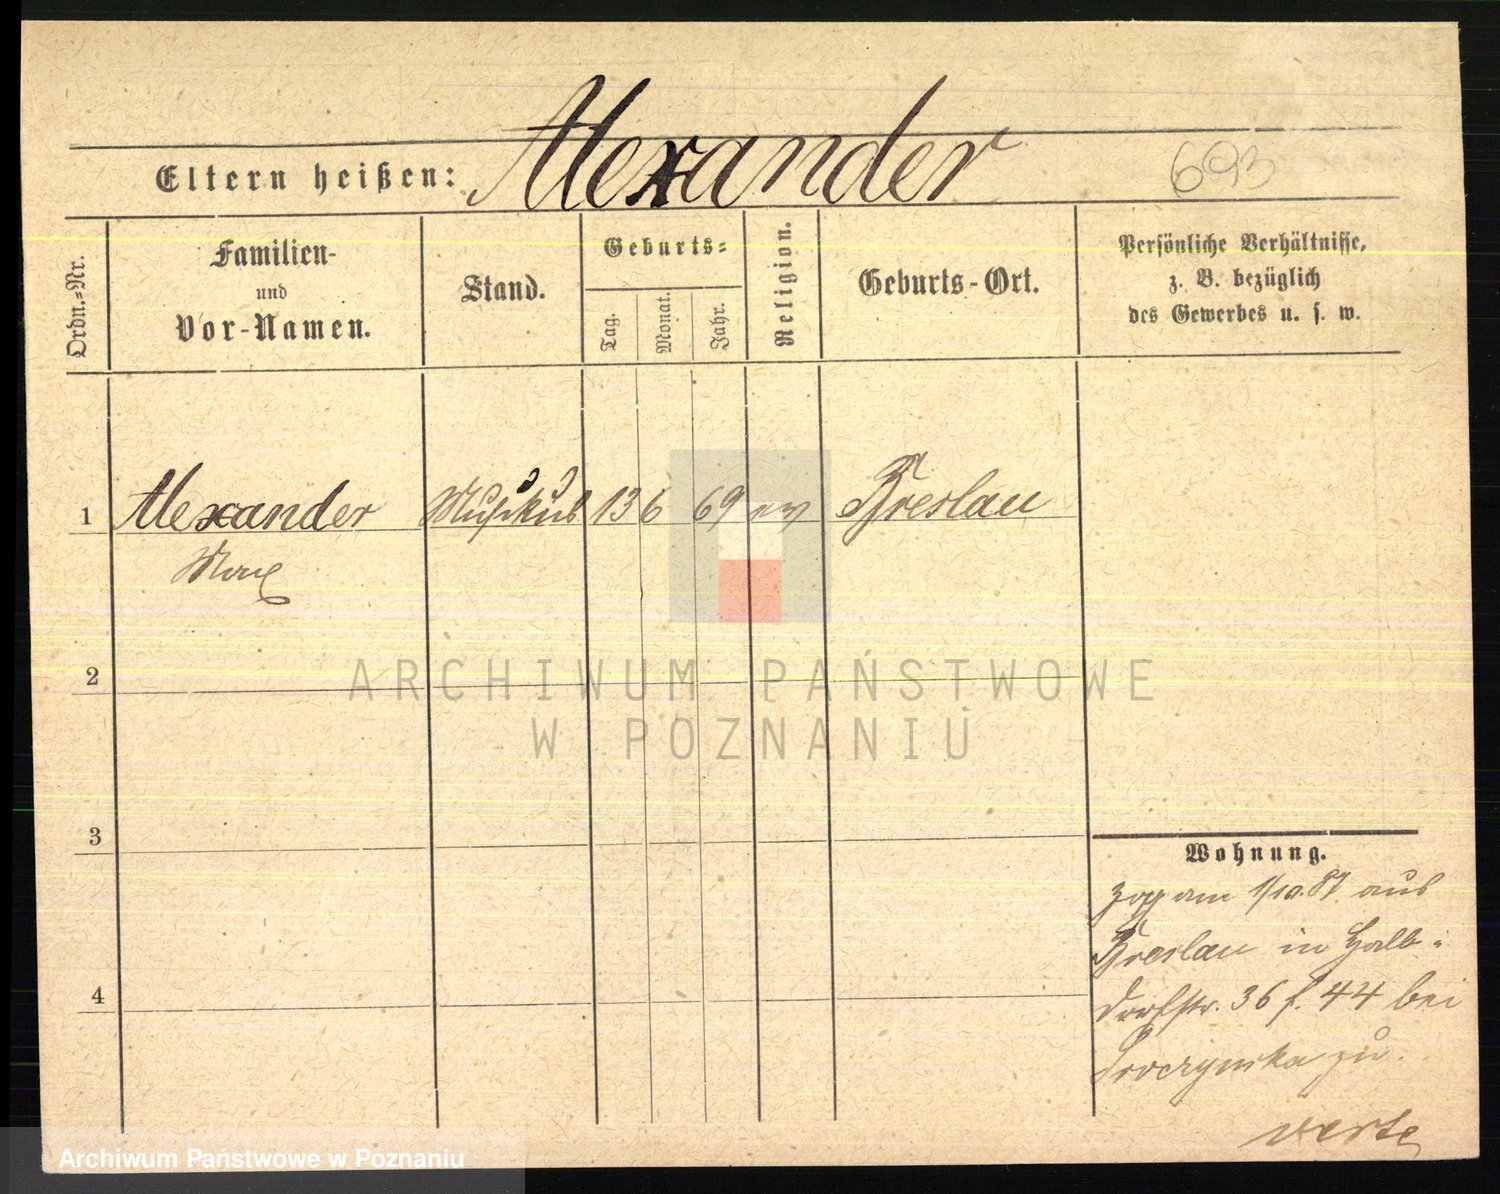 Alexander
693
Eltern heißen:
Ordn.=Nr.
Familien-
und
Vor-Namen.
Stand.
Geburts=
Tag.
Monat.
Jahr.
Religion.
Geburts-Ort.
Persönliche Verhältnisse,
z. B. bezüglich
des Gewerbes u. s. w.
1 Alexander Musikus 13 6 69 ev Breslau
Max
2
ARCHIWUM PAŃSTWOWE
W POZNANIU
3
Wohnung.
zog am 1/10.87 aus
Breslau in Halb-
dorfstr. 36 f. 44 bei
4
zu.
verte
Archiwum Państwowe w Poznaniu